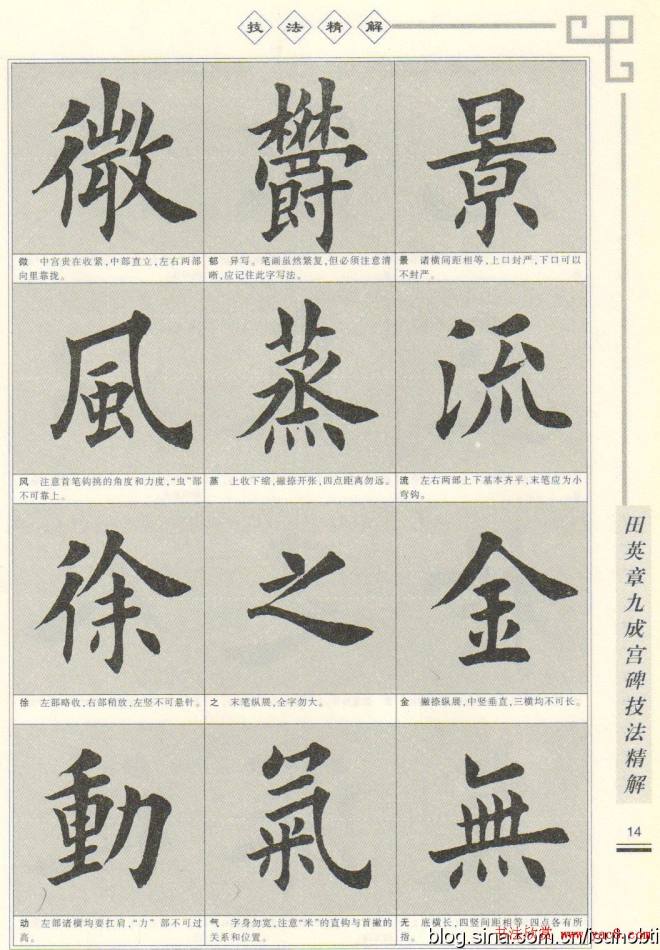 技法精解
微 欝 景
微 中宫贵在收紧,中部直立,左右两部
向里靠拢。
郁 异写。笔画虽然繁复,但必须注意清
晰,应记住此字写法。
景 诸横间距相等,上口封严,下口可以
不封严。
風 蒸 流
风 注意首笔钩挑的角度和力度,“虫”部
不可靠上。
蒸 上收下缩,撇捺开张,四点距离勿远。
流 左右两部上下基本齐平,末笔应为小
弯钩。
徐 之 金
徐 左部略收,右部稍放,左竖不可悬针。
之 末笔纵展,全字勿大。
金 撇捺纵展,中竖垂直,三横均不可长。
動 氣 無
动 左部诸横均要扛肩,“力”部不可过
高。
气 字身勿宽,注意“米”的直钩与首撇的
关系和位置。
无 底横长,四竖间距相等,四点各有所
指。
田英章九成宫碑技法精解
14
书法欣赏